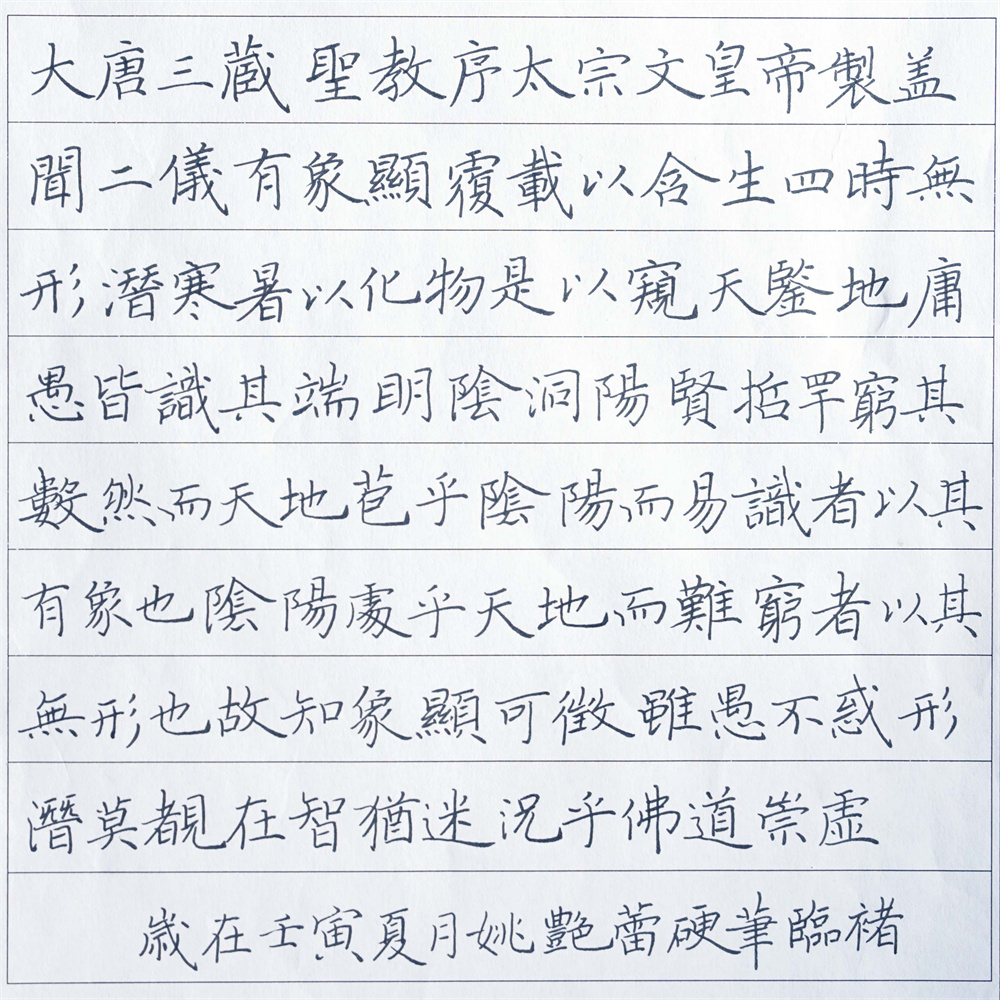 大唐三蔵聖教序太宗文皇帝製盖
聞二儀有象顯覆載以含生四時無
形潛寒暑以化物是以窺天鑒地庸
愚皆識其端明陰洞陽賢哲罕窮其
數然而天地苞乎陰陽而易識者以其
有象也陰陽處乎天地而難窮者以其
無形也故知象顯可徵雖愚不惑形
潛莫覩在智猶迷況乎佛道崇虛
歲在壬寅夏月姚艷蕾硬筆臨褚